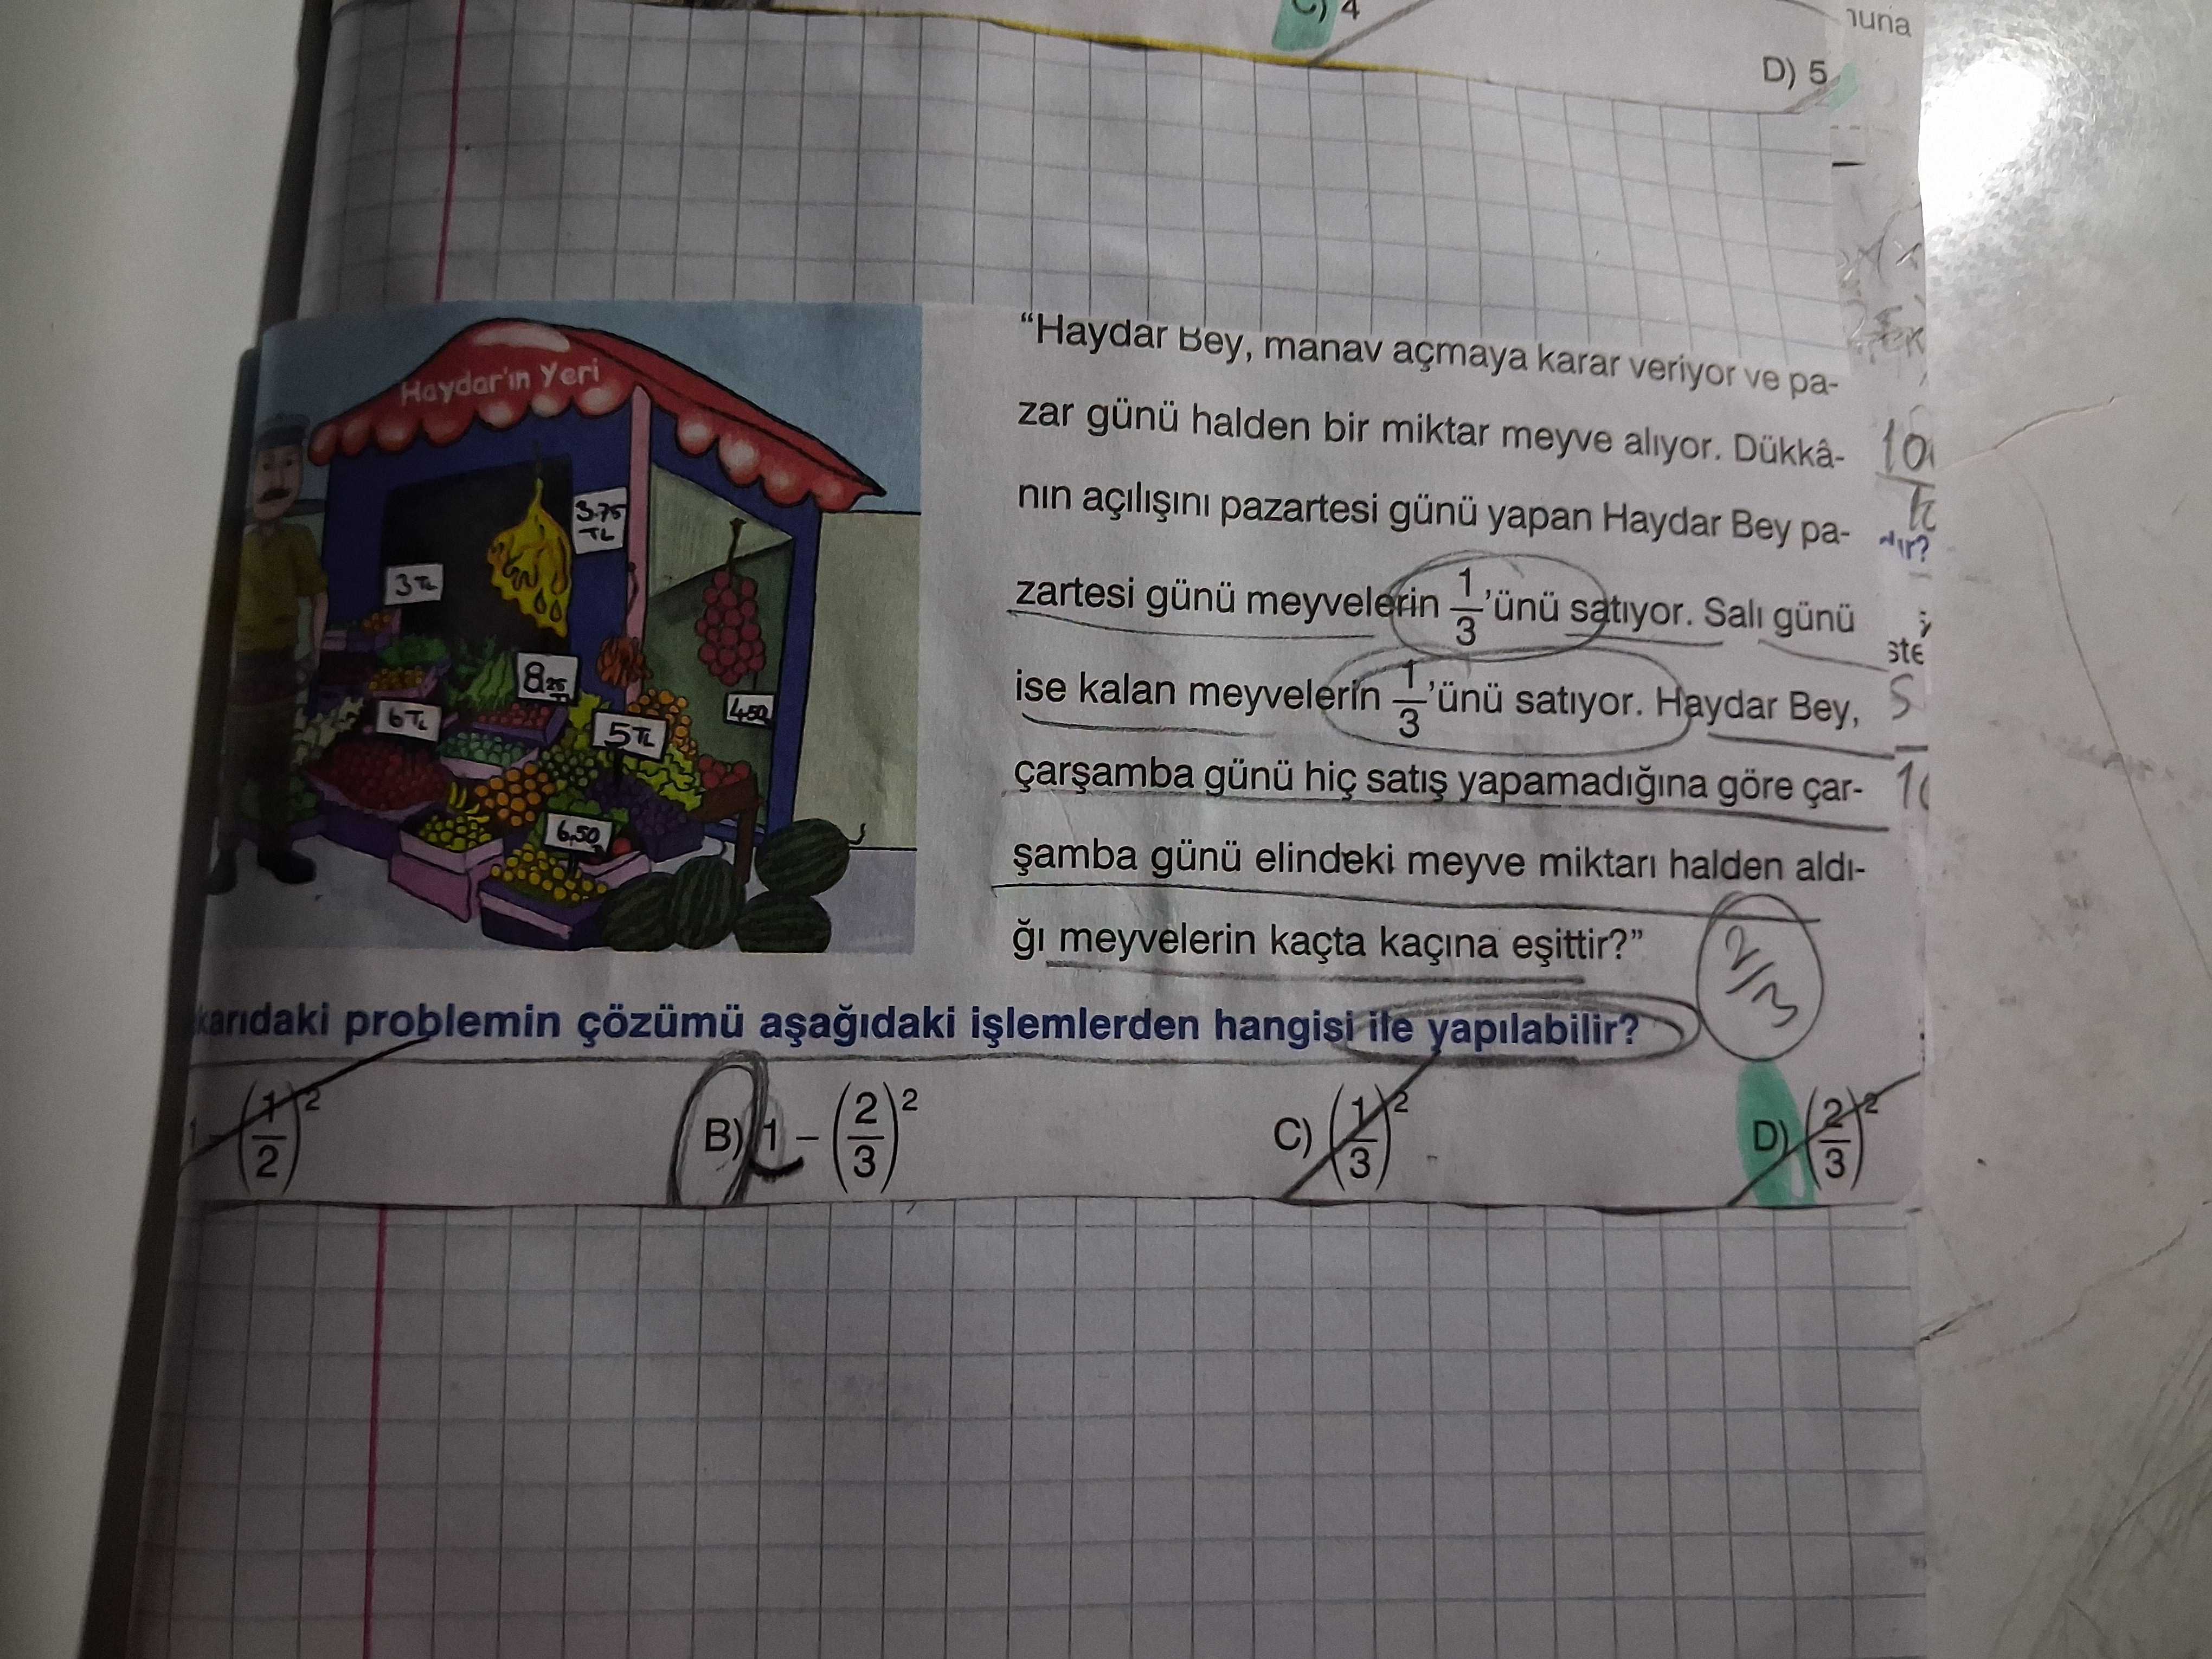 C) 4
D) 5
Haydar'ın Yeri
3.75
TL
3 TL
8.25
TL
6 TL
5 TL
4.50
6.50
“Haydar Bey, manav açmaya karar veriyor ve pa-
zar günü halden bir miktar meyve alıyor. Dükkâ-
nın açılışını pazartesi günü yapan Haydar Bey pa-
zartesi günü meyvelerin 1/3'ünü satıyor. Salı günü
ise kalan meyvelerin 1/3'ünü satıyor. Haydar Bey,
çarşamba günü hiç satış yapamadığına göre çar-
şamba günü elindeki meyve miktarı halden aldı-
ğı meyvelerin kaçta kaçına eşittir?”
2/3
karıdaki problemin çözümü aşağıdaki işlemlerden hangisi ile yapılabilir?
1 – (1/2)² B) 1 – (2/3)² C) (1/3)² D) (2/3)²